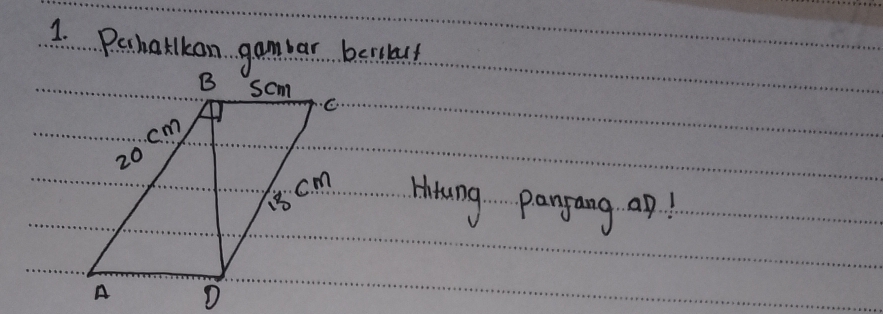 1. Perhatikan gambar berikut
B 5cm C
20 cm
13 cm
Hitung panjang AD!
A D